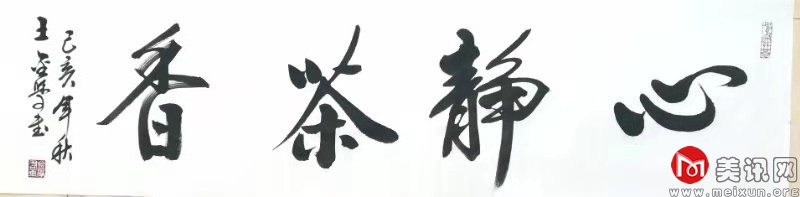 心静茶香
己亥年秋
王登学书
美讯网
www.meixun.org